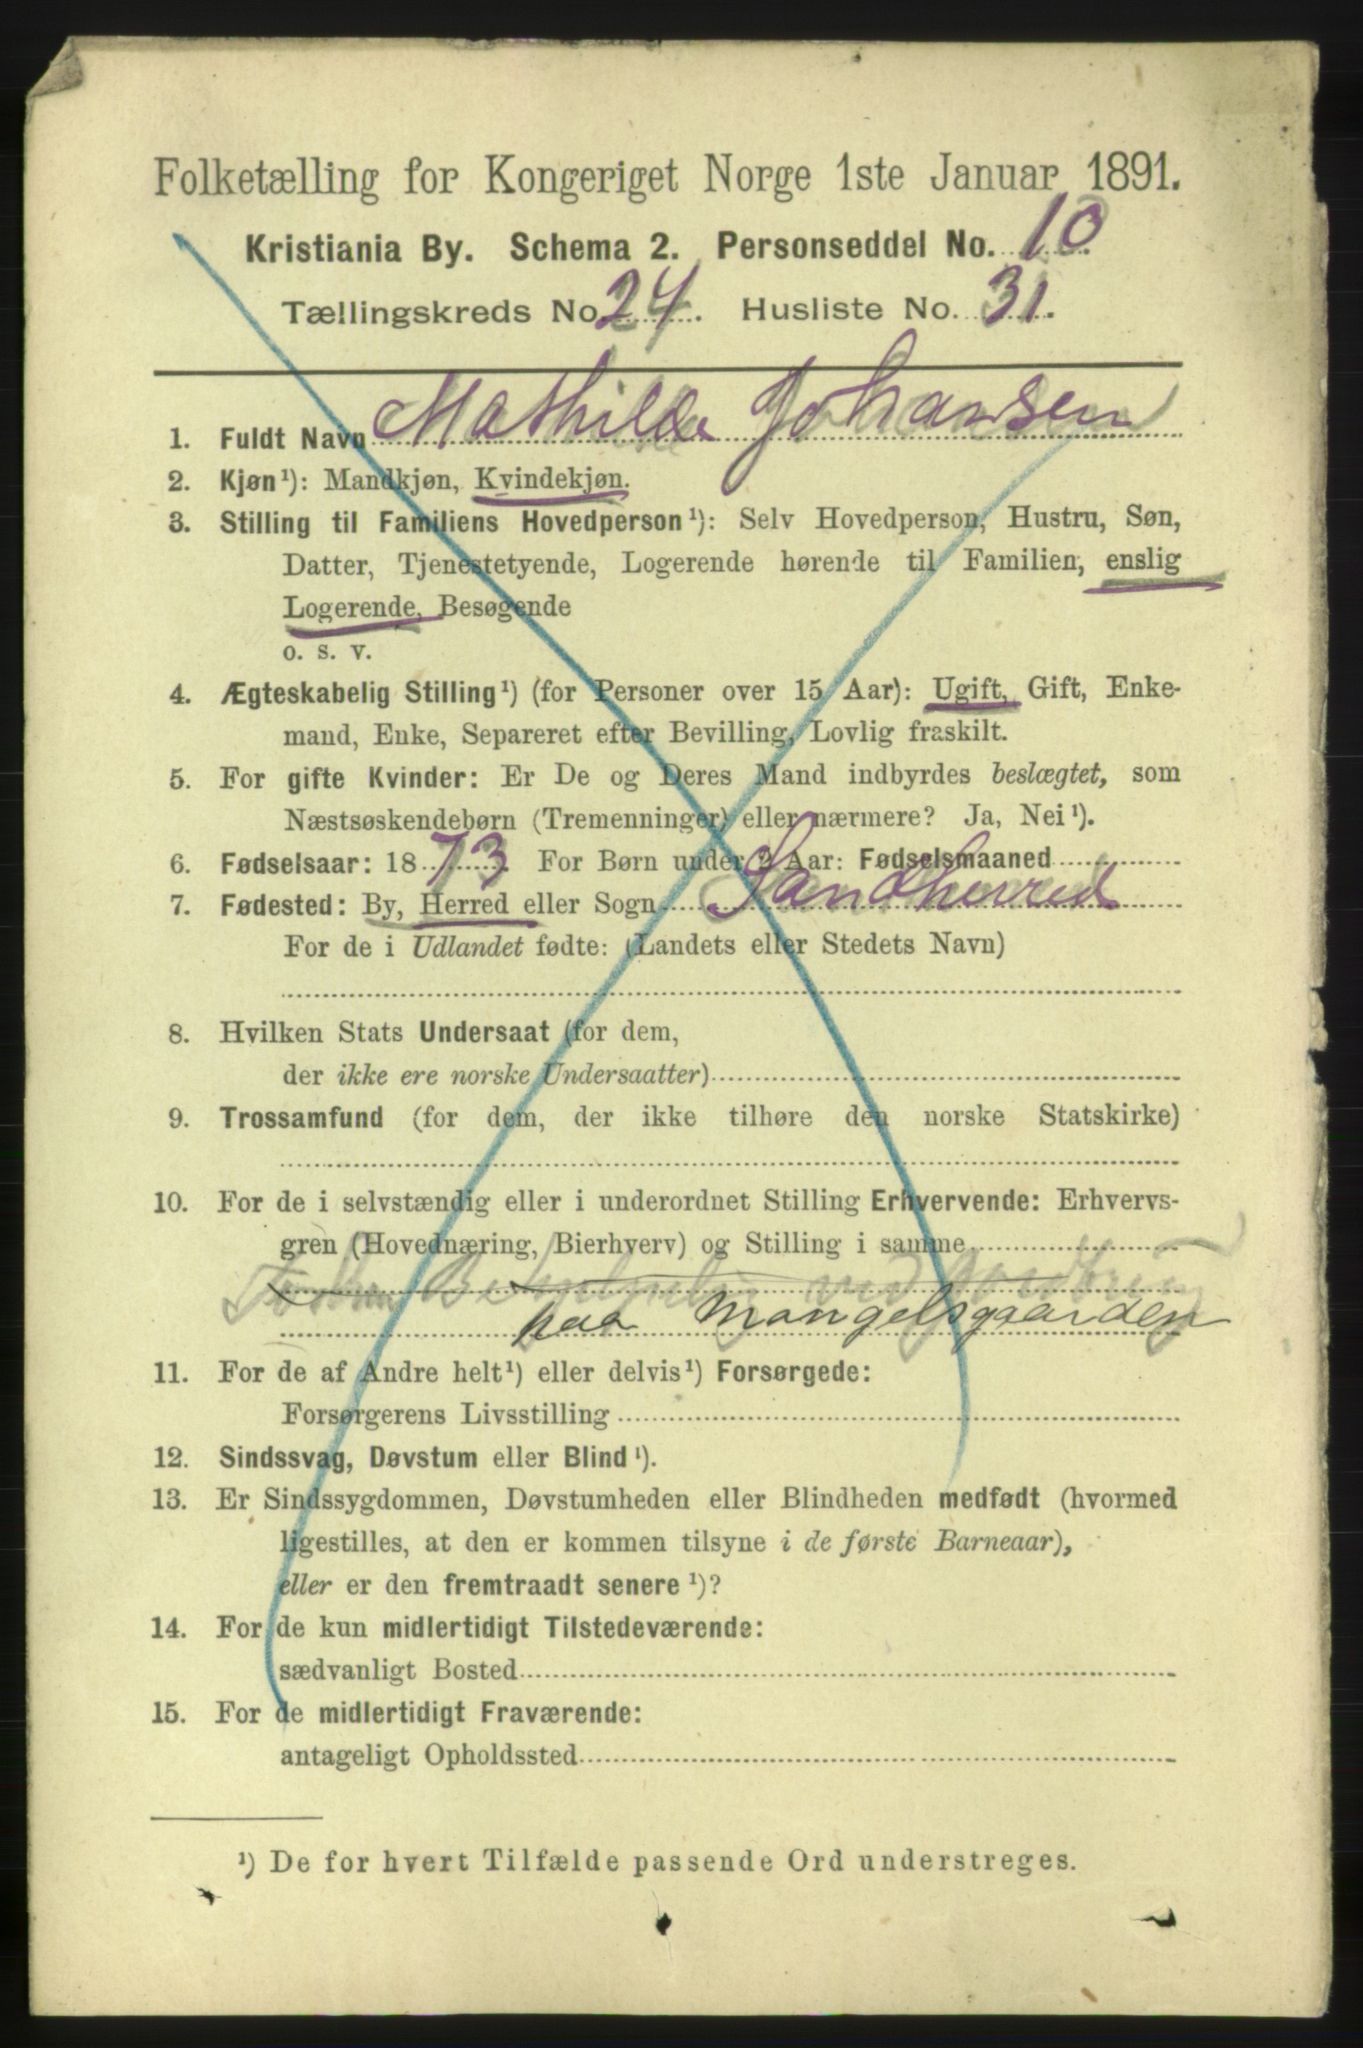 Folketælling for Kongeriget Norge 1ste Januar 1891.
Kristiania By. Schema 2. Personseddel No. 10
Tællingskreds No. 24. Husliste No. 31.
1. Fuldt Navn Mathilde Johansen
2. Kjøn¹): Mandkjøn, Kvindekjøn.
3. Stilling til Familiens Hovedperson¹): Selv Hovedperson, Hustru, Søn,
Datter, Tjenestetyende, Logerende hørende til Familien, enslig
Logerende, Besøgende
o. s. v.
4. Ægteskabelig Stilling¹) (for Personer over 15 Aar): Ugift, Gift, Enke-
mand, Enke, Separeret efter Bevilling, Lovlig fraskilt.
5. For gifte Kvinder: Er De og Deres Mand indbyrdes beslægtet, som
Næstsøskendebørn (Tremenninger) eller nærmere? Ja, Nei¹).
6. Fødselsaar: 1873. For Børn under 2 Aar: Fødselsmaaned
7. Fødested: By, Herred eller Sogn Sandherred
For de i Udlandet fødte: (Landets eller Stedets Navn)
8. Hvilken Stats Undersaat (for dem,
der ikke ere norske Undersaatter)
9. Trossamfund (for dem, der ikke tilhøre den norske Statskirke)
10. For de i selvstændig eller i underordnet Stilling Erhvervende: Erhvervs-
gren (Hovednæring, Bierhverv) og Stilling i samme
ved
paa Mangelsgaarden
11. For de af Andre helt¹) eller delvis¹) Forsørgede:
Forsørgerens Livsstilling
12. Sindssvag, Døvstum eller Blind¹).
13. Er Sindssygdommen, Døvstumheden eller Blindheden medfødt (hvormed
ligestilles, at den er kommen tilsyne i de første Barneaar),
eller er den fremtraadt senere¹)?
14. For de kun midlertidigt Tilstedeværende:
sædvanligt Bosted
15. For de midlertidigt Fraværende:
antageligt Opholdssted
¹) De for hvert Tilfælde passende Ord understreges.